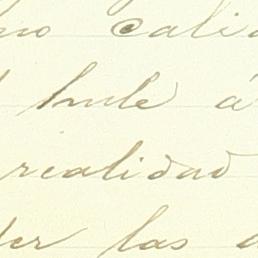 mo cali
hule á
realidad
der las a